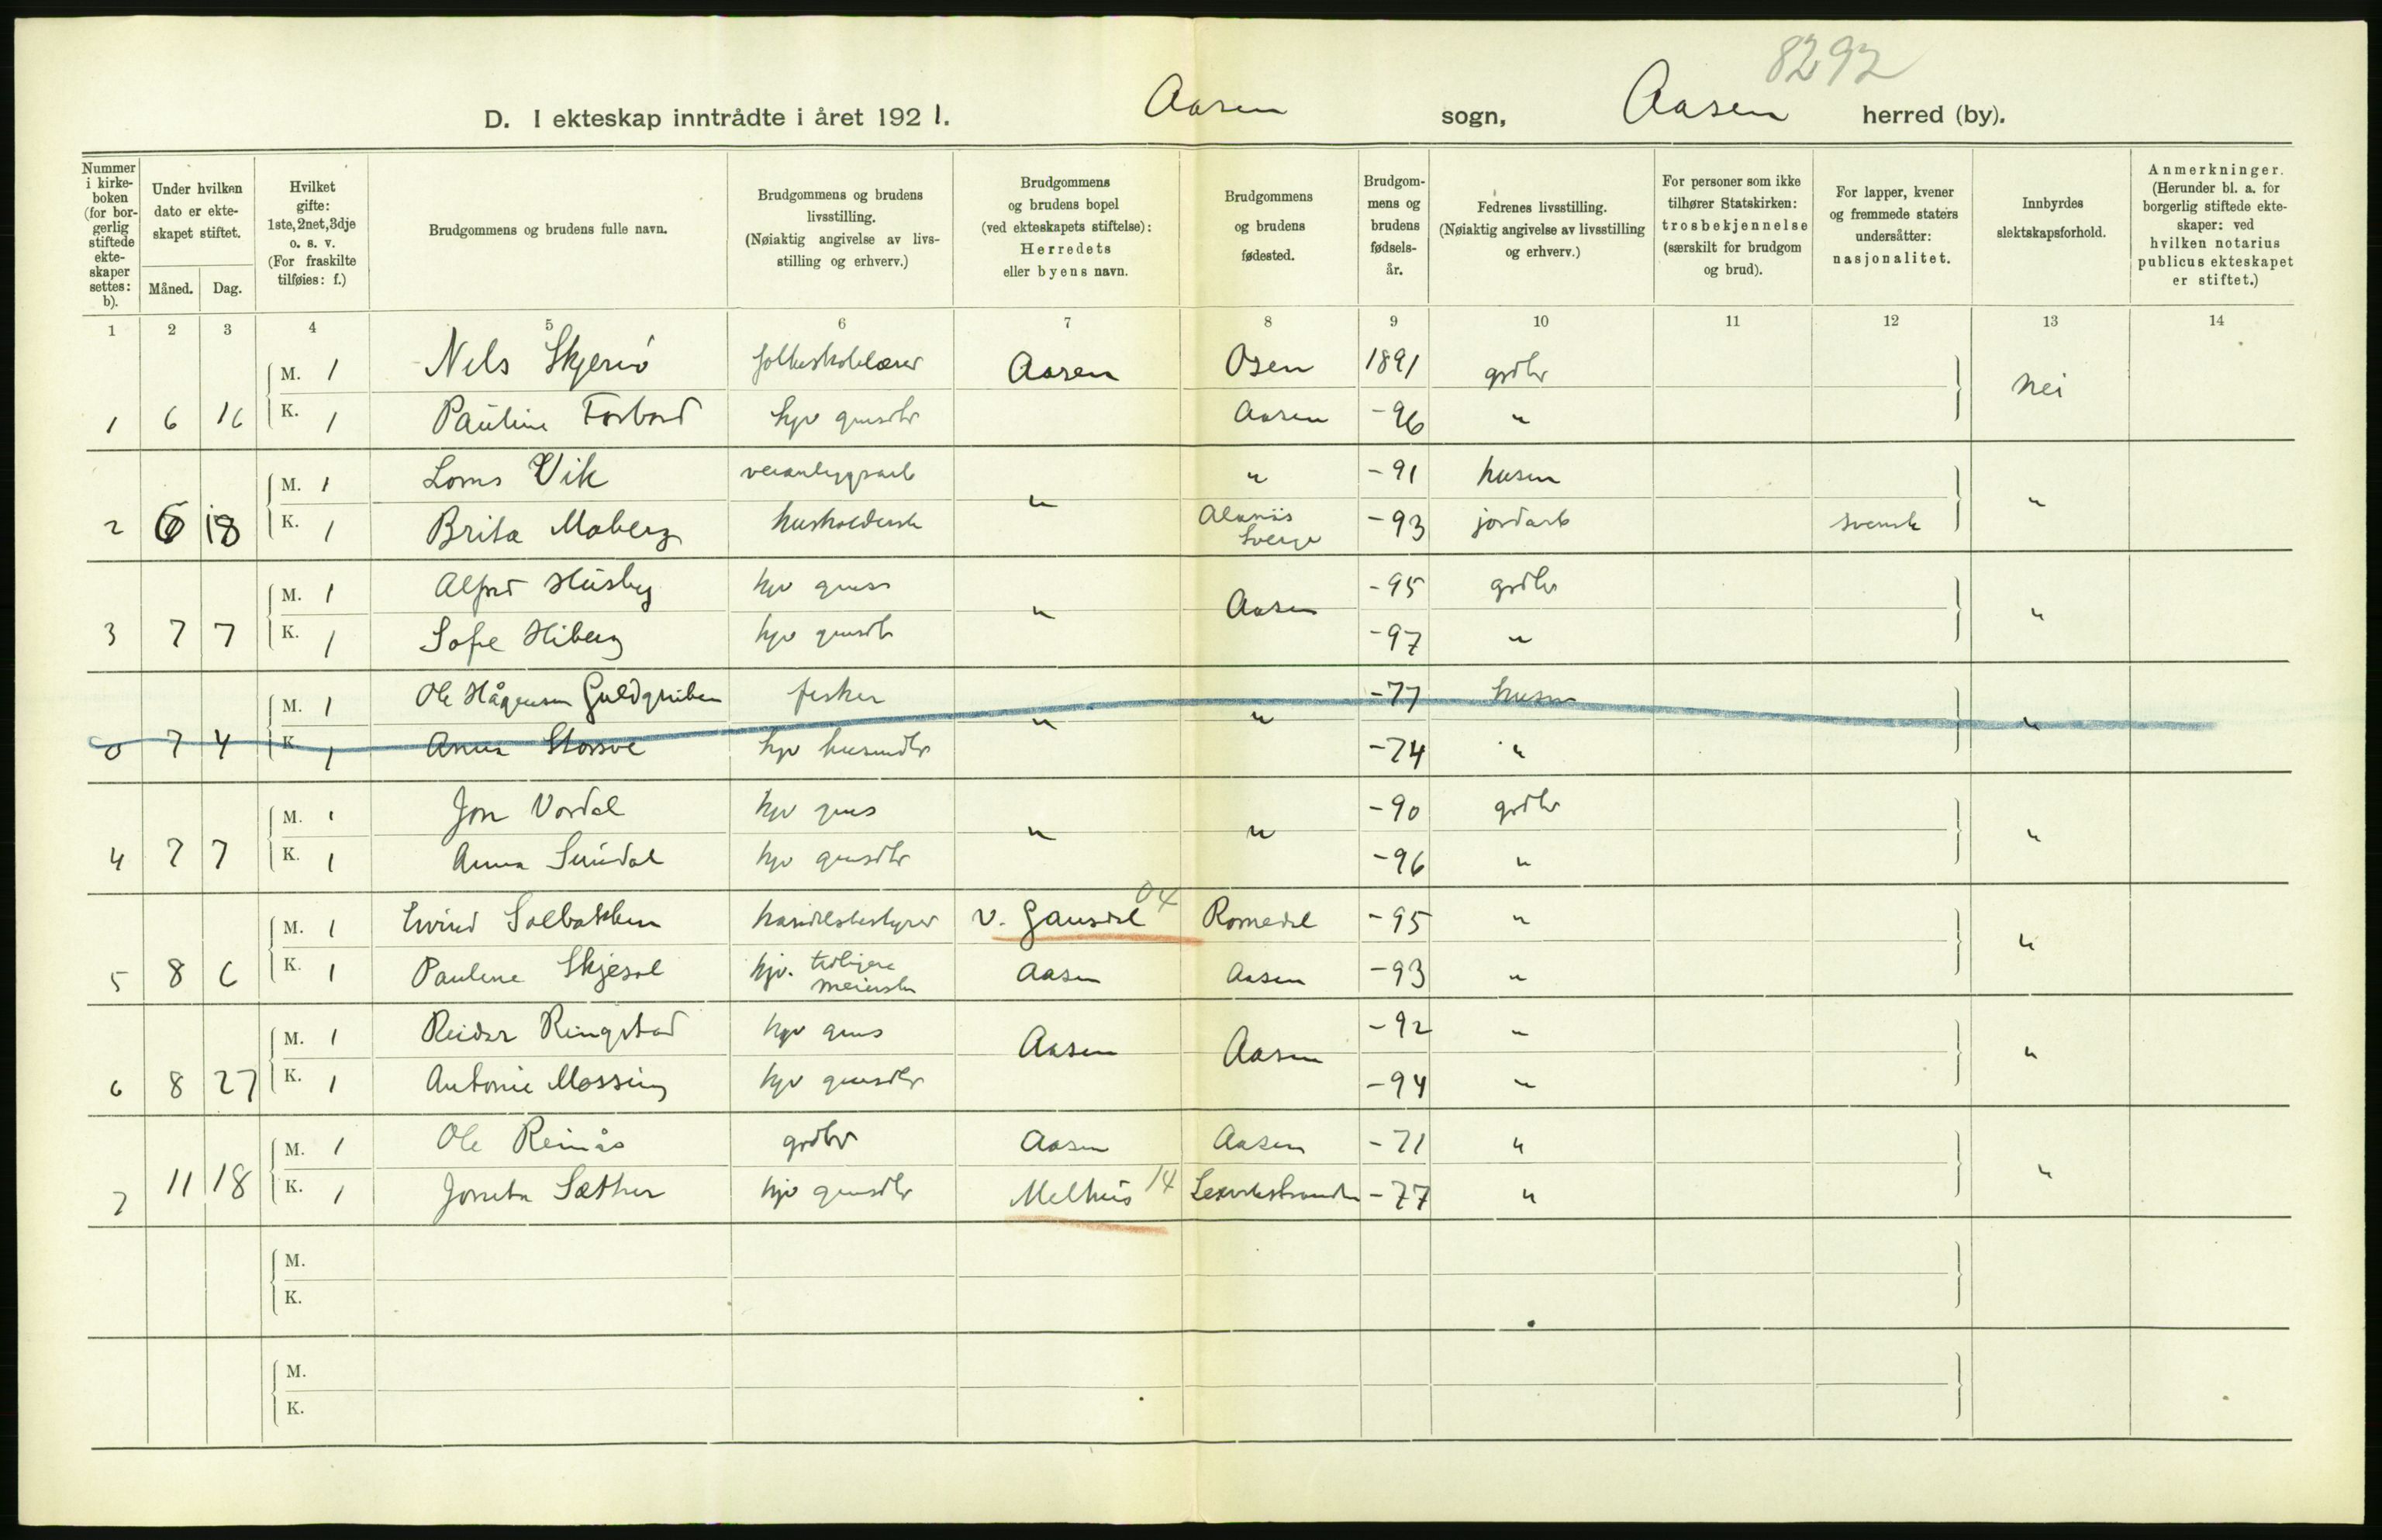 8292
D. I ekteskap inntrådte i året 1921. Aasen sogn, Aasen herred (by).
Nummer i kirkeboken (for borgerlig stiftede ekteskaper settes: b).
Under hvilken dato er ekteskapet stiftet.
Måned. Dag.
Hvilket gifte: 1ste, 2net, 3dje o. s. v. (For fraskilte tilføies: f.)
Brudgommens og brudens fulle navn.
Brudgommens og brudens livsstilling. (Nøiaktig angivelse av livsstilling og erhverv.)
Brudgommens og brudens bopel (ved ekteskapets stiftelse): Herredets eller byens navn.
Brudgommens og brudens fødested.
Brudgommens og brudens fødselsår.
Fedrenes livsstilling. (Nøiaktig angivelse av livsstilling og erhverv.)
For personer som ikke tilhører Statskirken: trosbekjennelse (særskilt for brudgom og brud).
For lapper, kvener og fremmede staters undersåtter: nasjonalitet.
Innbyrdes slektskapsforhold.
Anmerkninger. (Herunder bl. a. for borgerlig stiftede ekteskaper: ved hvilken notarius publicus ekteskapet er stiftet.)
1 2 3 4 5 6 7 8 9 10 11 12 13 14
M. 1 Nels folkeskolelærer Aasen Osen 1891 grdbr nei
1 6 16 K. 1 Pauline Forbord hjv grusdtr Aasen -96 "
M. 1 Vik veianlyggsarb " " -91 husm "
2 6 18 K. 1 Brita Moberg husholderske Sverge -93 jordarb svensk
M. 1 Alfred Husby hjv grus " Aasen -95 grdbr "
3 7 7 K. 1 Sofie Hiberg hjv grusdtr -97 "
M. 1 Ole Hågensen Guldgruben fisker " " -77 husm "
7 4 K. 1 Anna Storsve hjv husmdtr -74 "
M. 1 Jon Vordal hjv grus " " -90 grdbr "
4 7 7 K. 1 Anna Sundal hjv grusdtr -96 "
M. 1 Eivind Solbakken handelsbestyrer V. Gausdal 04 Romedal -95 " "
5 8 6 K. 1 Pauline Skjesol hjv. tidligere meierske Aasen Aasen -93 "
M. 1 Reidar Ringstad hjv grus Aasen Aasen -92 " "
6 8 27 K. 1 Antonie Mossing hjv grusdtr -94 "
M. 1 Ole Reinås grdbr Aasen Aasen -71 " "
7 11 18 K. 1 Sæther hjv grusdtr Melhus 14 Leksvikstranden -77 "
M.
K.
M.
K.